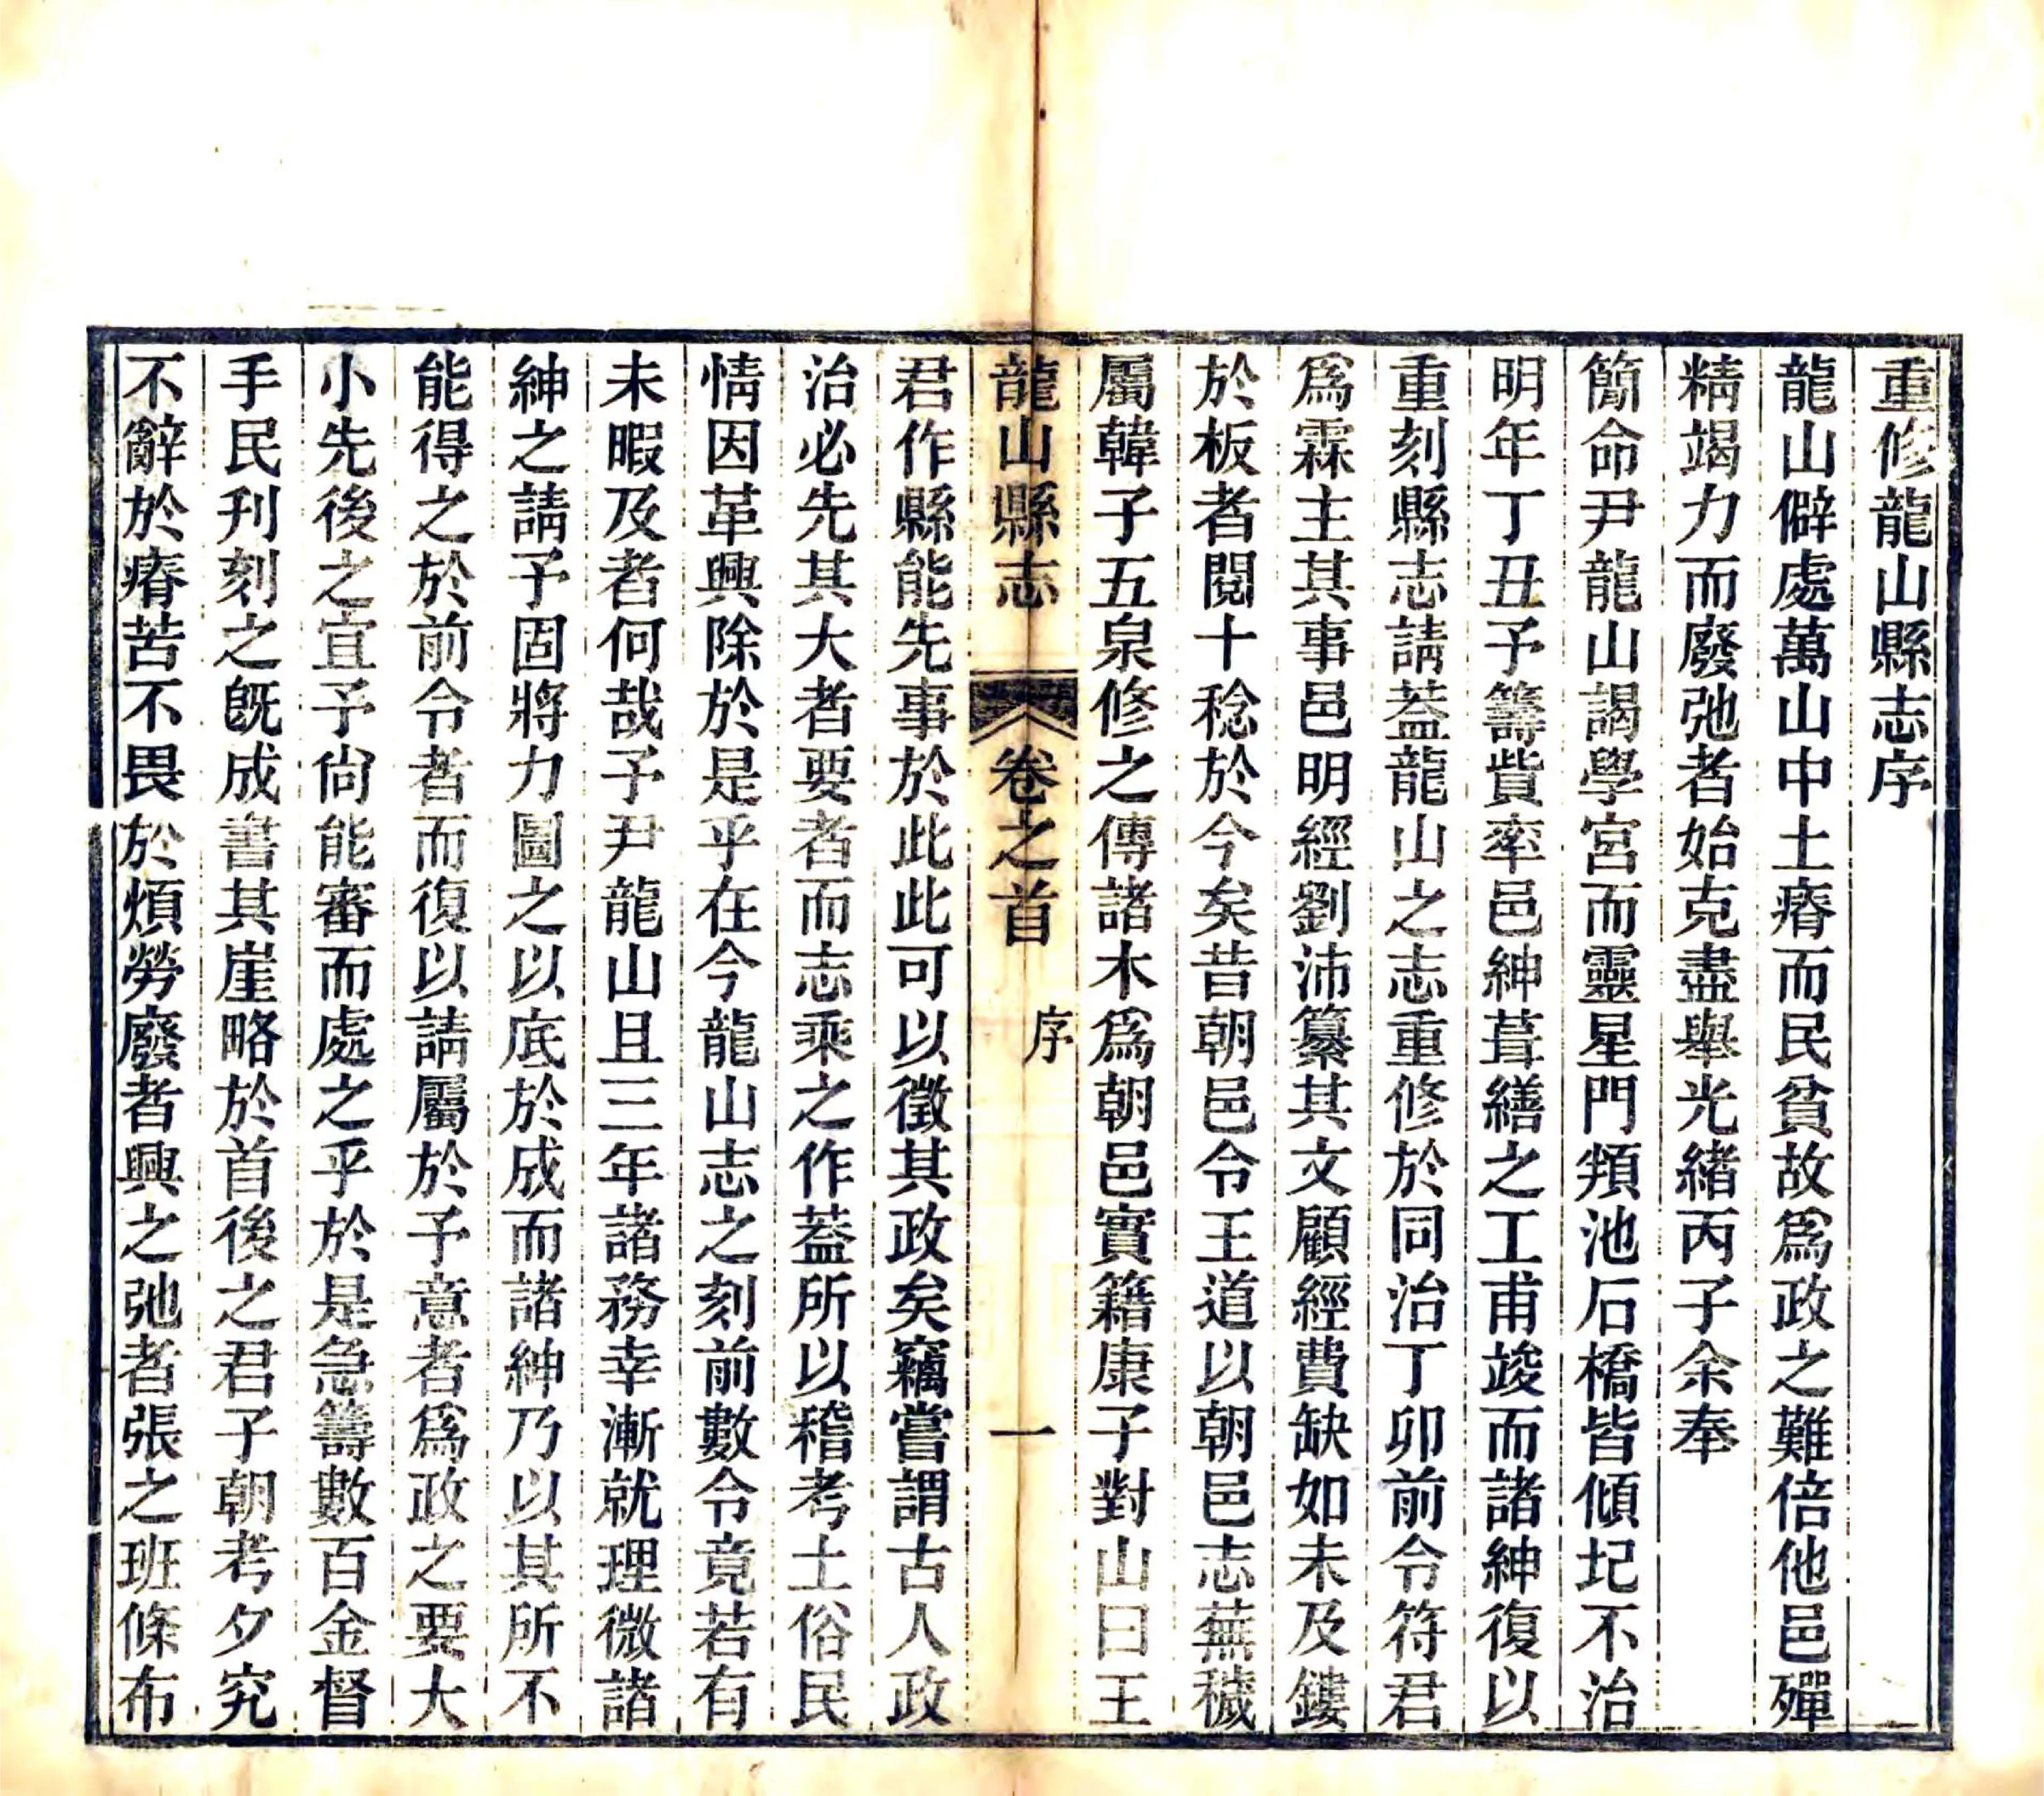 重修龍山縣志序
龍山僻處萬山中土瘠而民貧故爲政之難倍他邑殫
精竭力而廢弛者始克盡舉光緒丙子余奉
簡命尹龍山謁學宮而靈星門頖池石橋皆傾圮不治
明年丁丑予籌貲率邑紳葺繕之工甫竣而諸紳復以
重刻縣志請葢龍山之志重修於同治丁卯前令符君
爲霖主其事邑明經劉沛纂其文顧經費缺如未及鏤
於板者閱十稔於今矣昔朝邑令王道以朝邑志蕪穢
屬韓子五泉修之傳諸木爲朝邑實籍康子對山曰王
龍山縣志 卷之首 序 一
君作縣能先事於此此可以徵其政矣竊嘗謂古人政
治必先其大者要者而志乘之作葢所以稽考土俗民
情因革興除於是乎在今龍山志之刻前數令竟若有
未暇及者何哉予尹龍山且三年諸務幸漸就理微諸
紳之請予固將力圖之以底於成而諸紳乃以其所不
能得之於前令者而復以請屬於予意者爲政之要大
小先後之宜予尙能審而處之乎於是急籌數百金督
手民刋刻之旣成書其崖略於首後之君子朝考夕究
不辭於瘠苦不畏於煩勞廢者興之弛者張之班條布